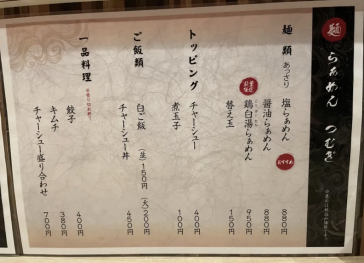 麺
らぁめん つむぎ
麺類 あっさり
塩らぁめん 880円
おすすめ
醤油らぁめん 880円
鶏白湯らぁめん 950円
替え玉 150円
トッピング
チャーシュー 400円
煮玉子 100円
ご飯類
白ご飯 (並)150円 (大)200円
チャーシュー丼 450円
一品料理
餃子 400円
キムチ 380円
チャーシュー盛り合わせ 700円